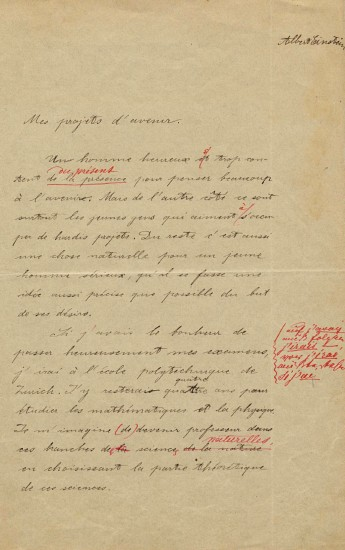 Albert Einstein
Mes projets d'avenir.
Un homme heureux est trop con-
du présent
tent de la présence pour penser beaucoup
à l'avenir. Mais de l'autre côté ce sont
surtout les jeunes gens qui aiment à s'occu-
per de hardis projets. Du reste c'est aussi
une chose naturelle pour un jeune
homme sérieux, qu'il se fasse une
idée aussi précise que possible du but
de ses désirs.
Si j'avais le bonheur de
passer heureusement mes examens,
j'irai à l'école polytechnique de
Zurich. J'y resterais quatre ans pour
étudier les mathématiques et la physique.
Je m'imagine (de) devenir professeur dans
naturelles
ces branches de la science de la nature
en choisissant la partie théorétique
de ces sciences.